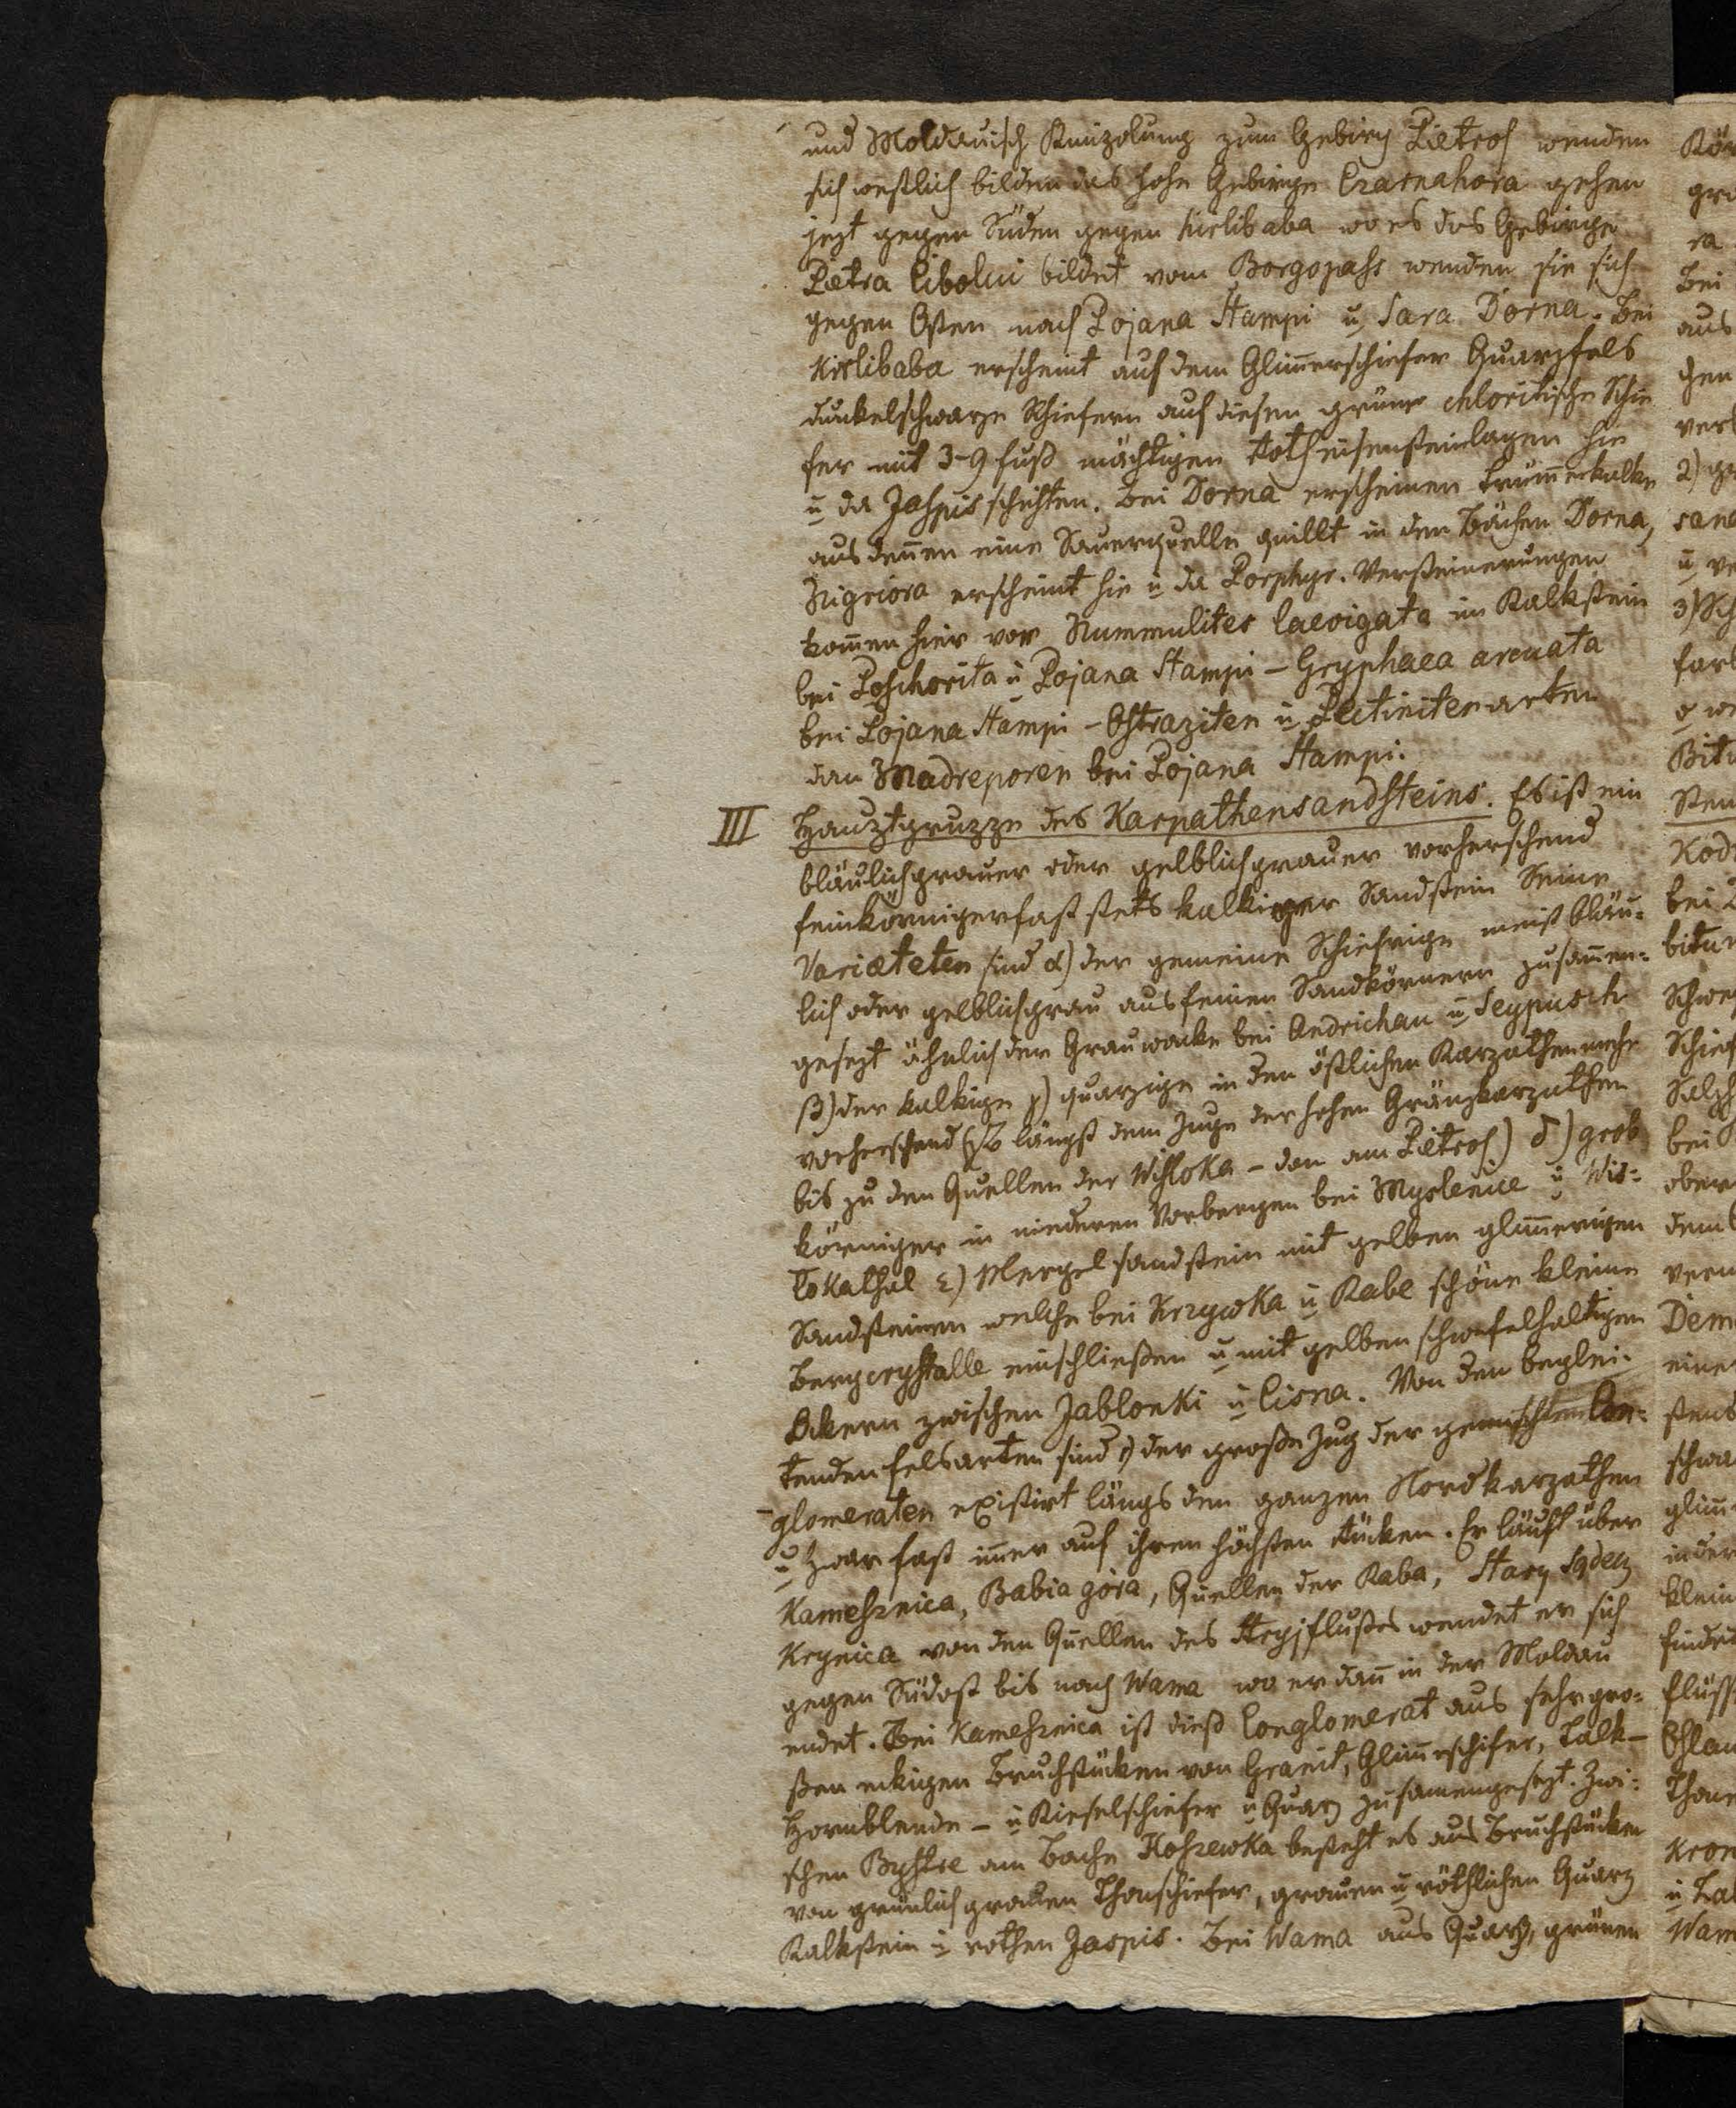 und Moldauisch Kimpolung zum Gebirg Pietros wenden
sich westlich bilden das hohe Gebirge Czarnahora gehen
jezt gegen Süden gegen Kirlibaba wo es das Gebirge
Pietra Cibolui bildet vom Borgopass wenden sie sich
gegen Osten nach Pojana Stampi u Sara Dorna. Bei
Kirlibaba erscheint auf dem Glim̅erschiefer Quarzfels
dunkelschwarze Schiefern auf diesen grüne chloritische Schie
fer mit 3-9 fuß mächtigen Rotheisensteinlagen hie
u da Jaspisschichten. Bei Dorna erscheinen Trüm̅erkalke
aus den̅en eine Sauerquelle quillt in den Bächen Dorna,
Nigriora erscheint hie u da Porphyr. Versteinerungen
kom̅en hier vor Nummulites laevigata im Kalkstein
bei Poschorita u Pojana Stampi – Gryphaea arcuata
bei Pojana Stampi – Ostraziten u Pectinitenarten
dan Madreporen bei Pojana Stampi.
III Hauptgruppe des Karpathensandsteins. Es ist ein
bläulichgrauer oder gelblichgrauer vorherschend
feinkörniger fast stets kalkiger Sandstein Seine
Varietæten sind α) der gemeine Schiefrige meist bläu=
lich oder gelblichgrau aus feinen Sandkörnern zusam̅en=
gesezt ähnlich der Grauwacke bei Andrichau u Seypusch
β) der kalkige γ) quarzige in den östlichen Karpathen mehr
vorherschend längst dem Zuge der hohen Gränzkarpathen
bis zu den Quellen der Wisloka – dan am Pietros) δ) grob
körniger in niederen Vorbergen bei Myslenice u Wis=
lokathal ε) Mergelsandstein mit gelben glim̅erigen
Sandsteinen welche bei Krzywka u Rabe schöne kleine
Bergcrystalle einschließen u mit gelben schwefelhaltigen
Ockern zwischen Jablonki u Cisna. Von den beglei=
tenden Felsarten sind der große Zug der gemischten Con=
glomeraten existirt längs den ganzen Nordkarpathen
u zwar fast im̅er auf ihren höchsten Rücken. Er läuft über
Kamesznica, Babia góra, Quellen der Raba, Stary Sądecz
Krynica von den Quellen des Stryjflußes wendet er sich
gegen Südost bis nach Wama wo er dan̅ in der Moldau
endet. Bei Kamesznica ist dieß Conglomerat aus sehr gro=
ßen eckigen Bruchstücken von Granit, Glim̅erschifer, Talk–
Hornblende – u Kieselschiefer u Quarz zusamengesezt. Zwi=
schen Bystre am Bache Koszewka besteht es aus Bruchstücken
von grünlich grauen Thonschiefer, grauen u röthlichen Quarz
Kalkstein u rothen Jaspis. Bei Wama aus Quarz, grünen